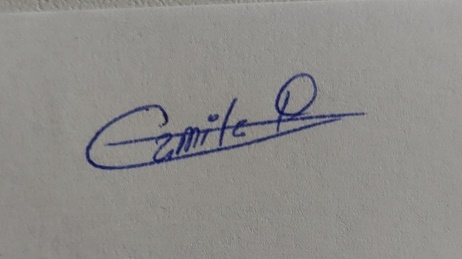 Camile P